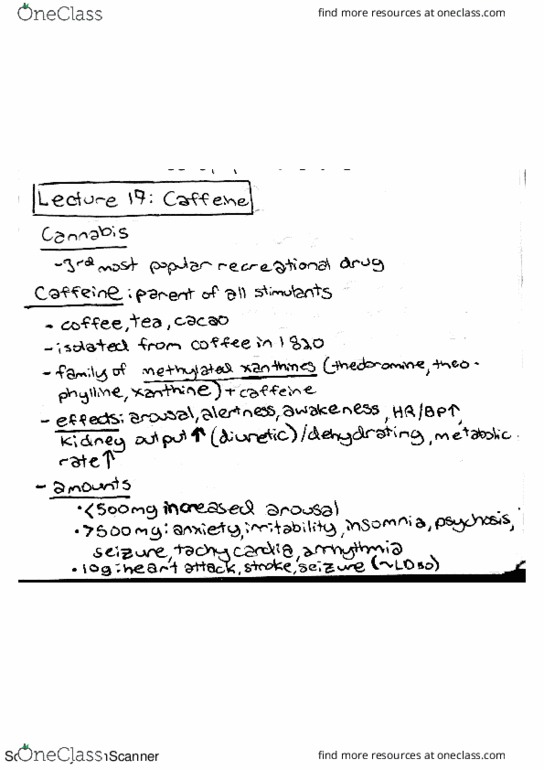 OneClass find more resources at oneclass.com
Lecture 19: Caffeine
Cannabis
-3rd most popular recreational drug
Caffeine: parent of all stimulants
- coffee, tea, cacao
- isolated from coffee in 1820
- family of methylated xanthines (theobromine, theo-
phylline, xanthine) + caffeine
- effects: arousal, alertness, awakeness, HR/BP↑,
kidney output ↑ (diuretic)/dehydrating, metabolic
rate ↑
- amounts
• <500mg increased arousal
• >500mg: anxiety, irritability, insomnia, psychosis,
seizure, tachycardia, arrhythmia
• 10g: heart attack, stroke, seizure (~LD50)
OneClass Scanner find more resources at oneclass.com